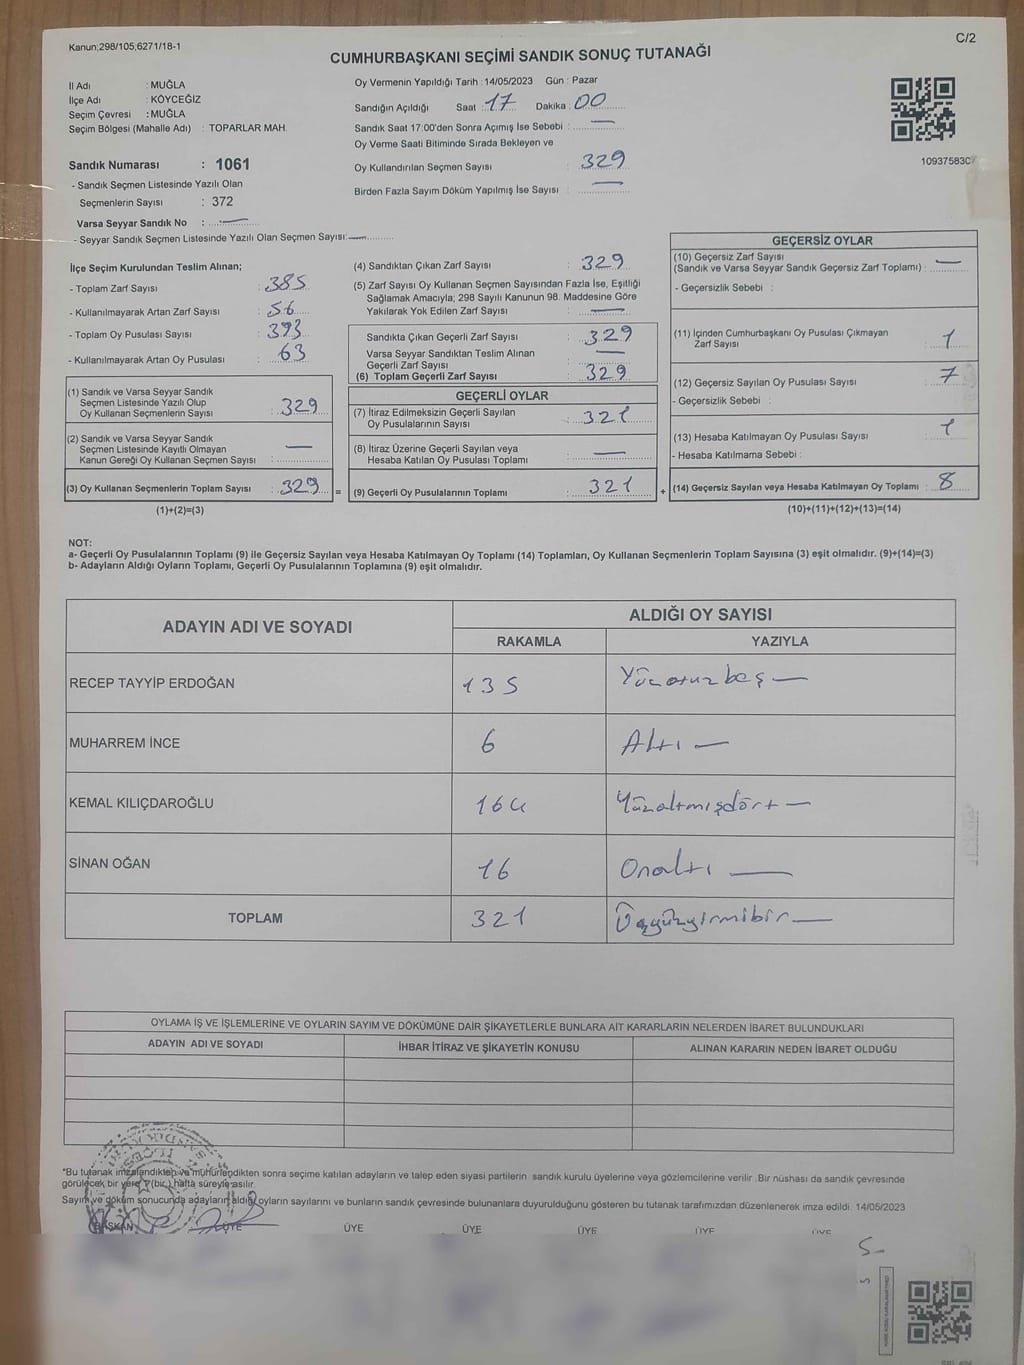 Kanun;298/105;6271/18-1
C/2
CUMHURBAŞKANI SEÇİMİ SANDIK SONUÇ TUTANAĞI
İl Adı : MUĞLA
İlçe Adı : KÖYCEĞİZ
Seçim Çevresi : MUĞLA
Seçim Bölgesi (Mahalle Adı) : TOPARLAR MAH.
Sandık Numarası : 1061
- Sandık Seçmen Listesinde Yazılı Olan
Seçmenlerin Sayısı : 372
Varsa Seyyar Sandık No : —
- Seyyar Sandık Seçmen Listesinde Yazılı Olan Seçmen Sayısı: —
Oy Vermenin Yapıldığı Tarih : 14/05/2023 Gün : Pazar
Sandığın Açıldığı Saat : 17 Dakika : 00
Sandık Saat 17:00'den Sonra Açımış İse Sebebi : —
Oy Verme Saati Bitiminde Sırada Bekleyen ve
Oy Kullandırılan Seçmen Sayısı : 329
Birden Fazla Sayım Döküm Yapılmış İse Sayısı : —
10937583C
İlçe Seçim Kurulundan Teslim Alınan;
- Toplam Zarf Sayısı : 385
- Kullanılmayarak Artan Zarf Sayısı : 56
- Toplam Oy Pusulası Sayısı : 393
- Kullanılmayarak Artan Oy Pusulası : 63
(1) Sandık ve Varsa Seyyar Sandık
Seçmen Listesinde Yazılı Olup
Oy Kullanan Seçmenlerin Sayısı : 329
(2) Sandık ve Varsa Seyyar Sandık
Seçmen Listesinde Kayıtlı Olmayan
Kanun Gereği Oy Kullanan Seçmen Sayısı : —
(3) Oy Kullanan Seçmenlerin Toplam Sayısı : 329 =
(1)+(2)=(3)
(4) Sandıktan Çıkan Zarf Sayısı : 329
(5) Zarf Sayısı Oy Kullanan Seçmen Sayısından Fazla İse, Eşitliği
Sağlamak Amacıyla; 298 Sayılı Kanunun 98. Maddesine Göre
Yakılarak Yok Edilen Zarf Sayısı : —
Sandıkta Çıkan Geçerli Zarf Sayısı : 329
Varsa Seyyar Sandıktan Teslim Alınan
Geçerli Zarf Sayısı : —
(6) Toplam Geçerli Zarf Sayısı : 329
GEÇERLİ OYLAR
(7) İtiraz Edilmeksizin Geçerli Sayılan
Oy Pusulalarının Sayısı : 321
(8) İtiraz Üzerine Geçerli Sayılan veya
Hesaba Katılan Oy Pusulası Toplamı : —
(9) Geçerli Oy Pusulalarının Toplamı : 321 +
GEÇERSİZ OYLAR
(10) Geçersiz Zarf Sayısı
(Sandık ve Varsa Seyyar Sandık Geçersiz Zarf Toplamı) : —
- Geçersizlik Sebebi :
(11) İçinden Cumhurbaşkanı Oy Pusulası Çıkmayan
Zarf Sayısı : 1
(12) Geçersiz Sayılan Oy Pusulası Sayısı : 7
- Geçersizlik Sebebi :
(13) Hesaba Katılmayan Oy Pusulası Sayısı : 1
- Hesaba Katılmama Sebebi :
(14) Geçersiz Sayılan veya Hesaba Katılmayan Oy Toplamı : 8
(10)+(11)+(12)+(13)=(14)
NOT:
a- Geçerli Oy Pusulalarının Toplamı (9) ile Geçersiz Sayılan veya Hesaba Katılmayan Oy Toplamı (14) Toplamları, Oy Kullanan Seçmenlerin Toplam Sayısına (3) eşit olmalıdır. (9)+(14)=(3)
b- Adayların Aldığı Oyların Toplamı, Geçerli Oy Pusulalarının Toplamına (9) eşit olmalıdır.
ADAYIN ADI VE SOYADI
ALDIĞI OY SAYISI
RAKAMLA YAZIYLA
RECEP TAYYİP ERDOĞAN 135 Yüzotuzbeş —
MUHARREM İNCE 6 Altı —
KEMAL KILIÇDAROĞLU 164 Yüzaltmışdört —
SİNAN OĞAN 16 Onaltı —
TOPLAM 321 Üçyüzyirmibir —
OYLAMA İŞ VE İŞLEMLERİNE VE OYLARIN SAYIM VE DÖKÜMÜNE DAİR ŞİKAYETLERLE BUNLARA AİT KARARLARIN NELERDEN İBARET BULUNDUKLARI
ADAYIN ADI VE SOYADI İHBAR İTİRAZ VE ŞİKAYETİN KONUSU ALINAN KARARIN NEDEN İBARET OLDUĞU
"Bu tutanak imzalandıktan ve mühürlendikten sonra seçime katılan adayların ve talep eden siyasi partilerin sandık kurulu üyelerine veya gözlemcilerine verilir. Bir nüshası da sandık çevresinde
görülecek bir yere 7(bir ) hafta süreyle asılır.
Sayım ve döküm sonucunda adayların aldığı oyların sayılarını ve bunların sandık çevresinde bulunanlara duyurulduğunu gösteren bu tutanak tarafımızdan düzenlenerek imza edildi. 14/05/2023
BAŞKAN ÜYE ÜYE ÜYE ÜYE ÜYE ÜYE